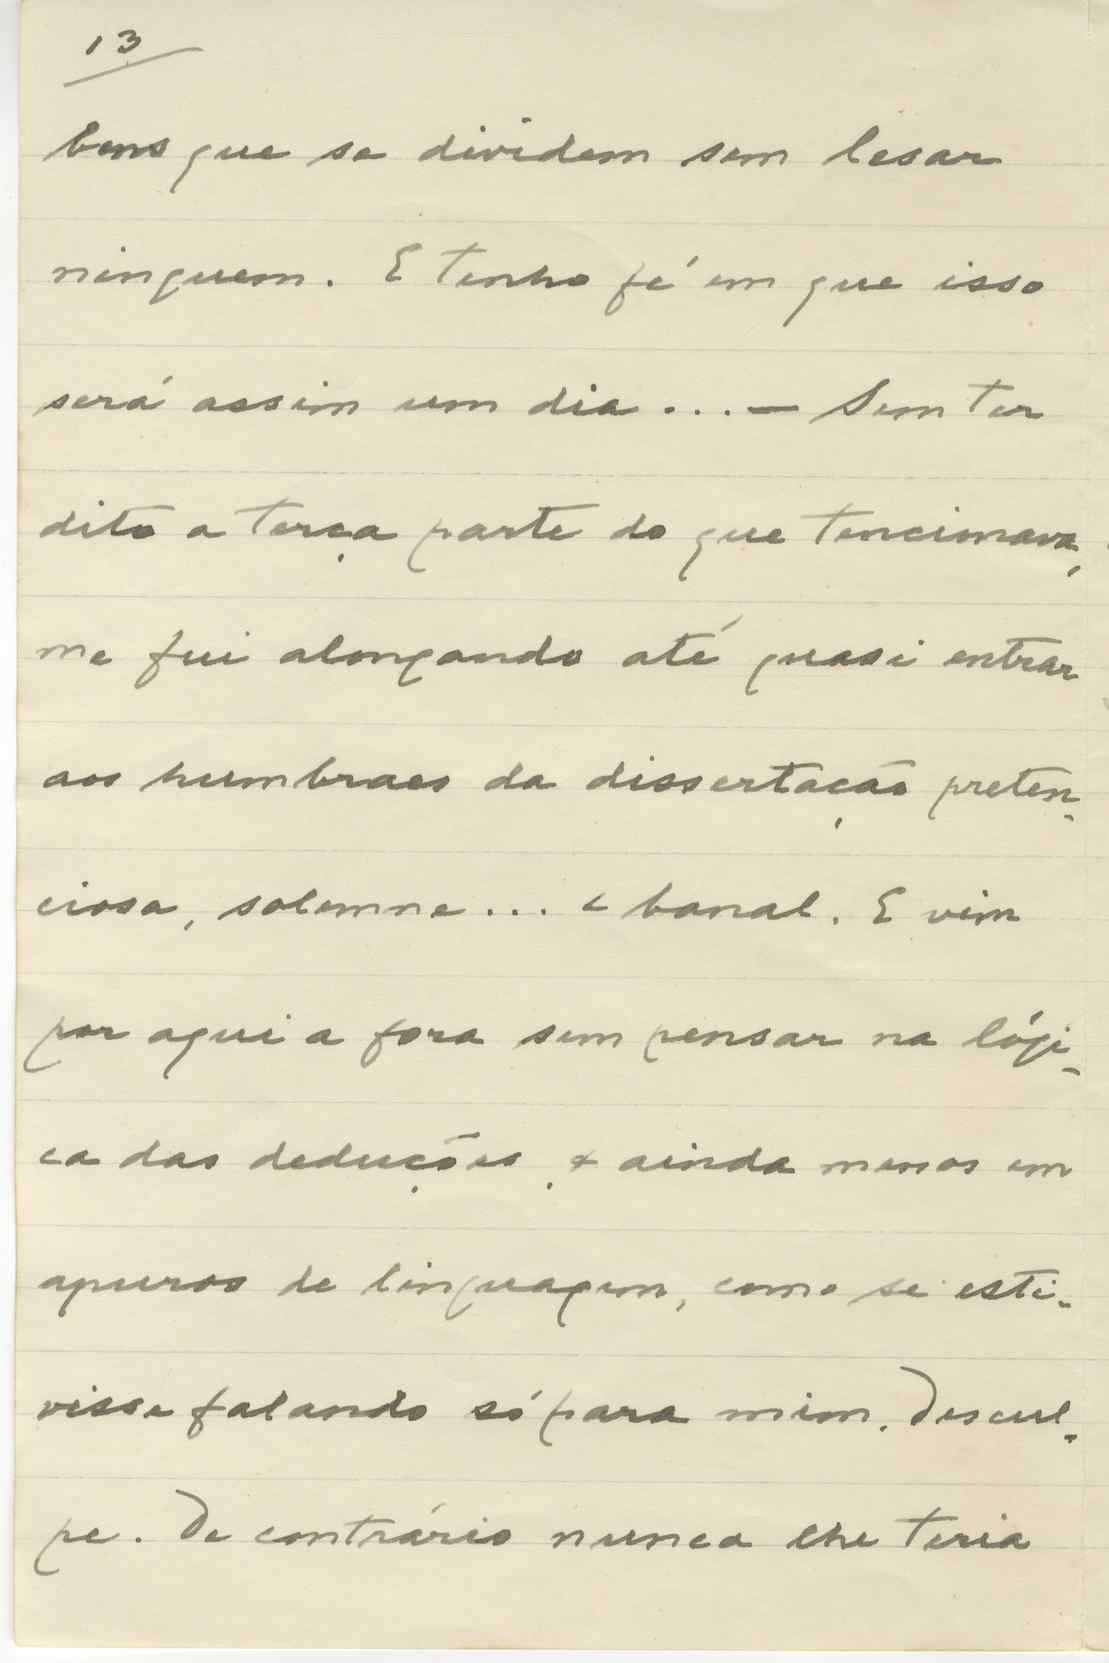 13
bens que se dividem sem lesar
ninguem. E tenho fé em que isso
será assim um dia...— Sem ter
dito a terça parte do que tencionava,
me fui alongando até quasi entrar
aos humbraes da dissertação preten-
ciosa, solemne... e banal. E vim
por aqui a fora sem pensar na lógi-
ca das deduções, e ainda menos em
apuros de linguagem, como se esti-
vesse falando só para mim. Descul-
pe. De contrário nunca lhe teria